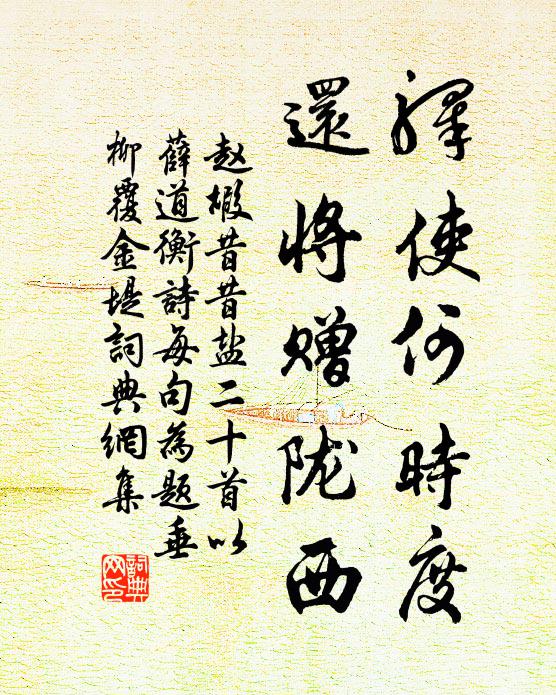 驛使何時度
還將贈陇西
赵嘏昔昔盐二十首以
薛道衡詩每句為題垂
柳覆金堤詞典網集
詞典
网印